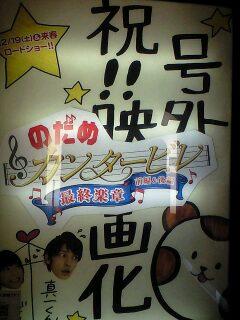 12/19(土)&来春
ロードショー!!
号外
祝!!映画化
のだめ
カンタービレ
最終楽章
前編&後編
真一くん